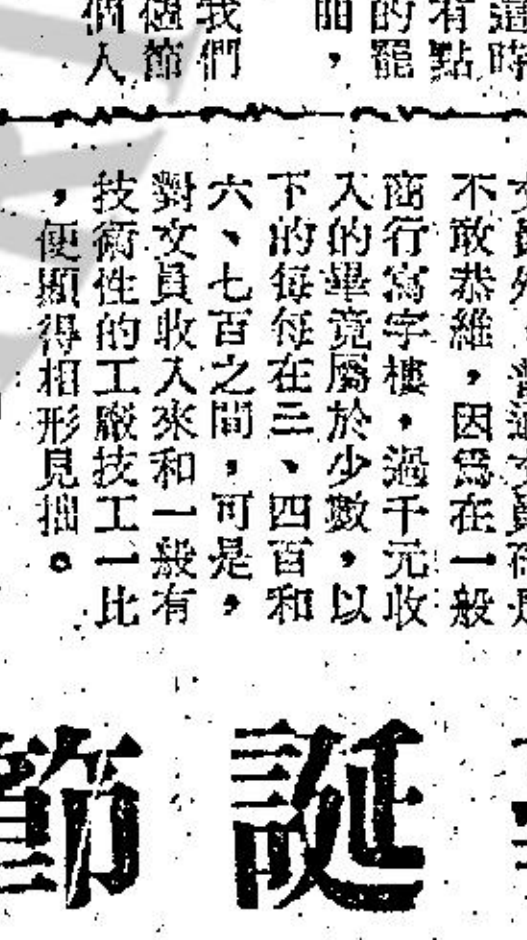 有點
的罷
，
我們
個節
個人
不敢恭維，因爲在一般
商行寫字樓，過千元收
入的畢竟屬於少數，以
下的每每在三、四百和
六、七百之間，可是，
對文員收入來和一般有
技術性的工廠技工一比
，便顯得相形見拙。
誕
節